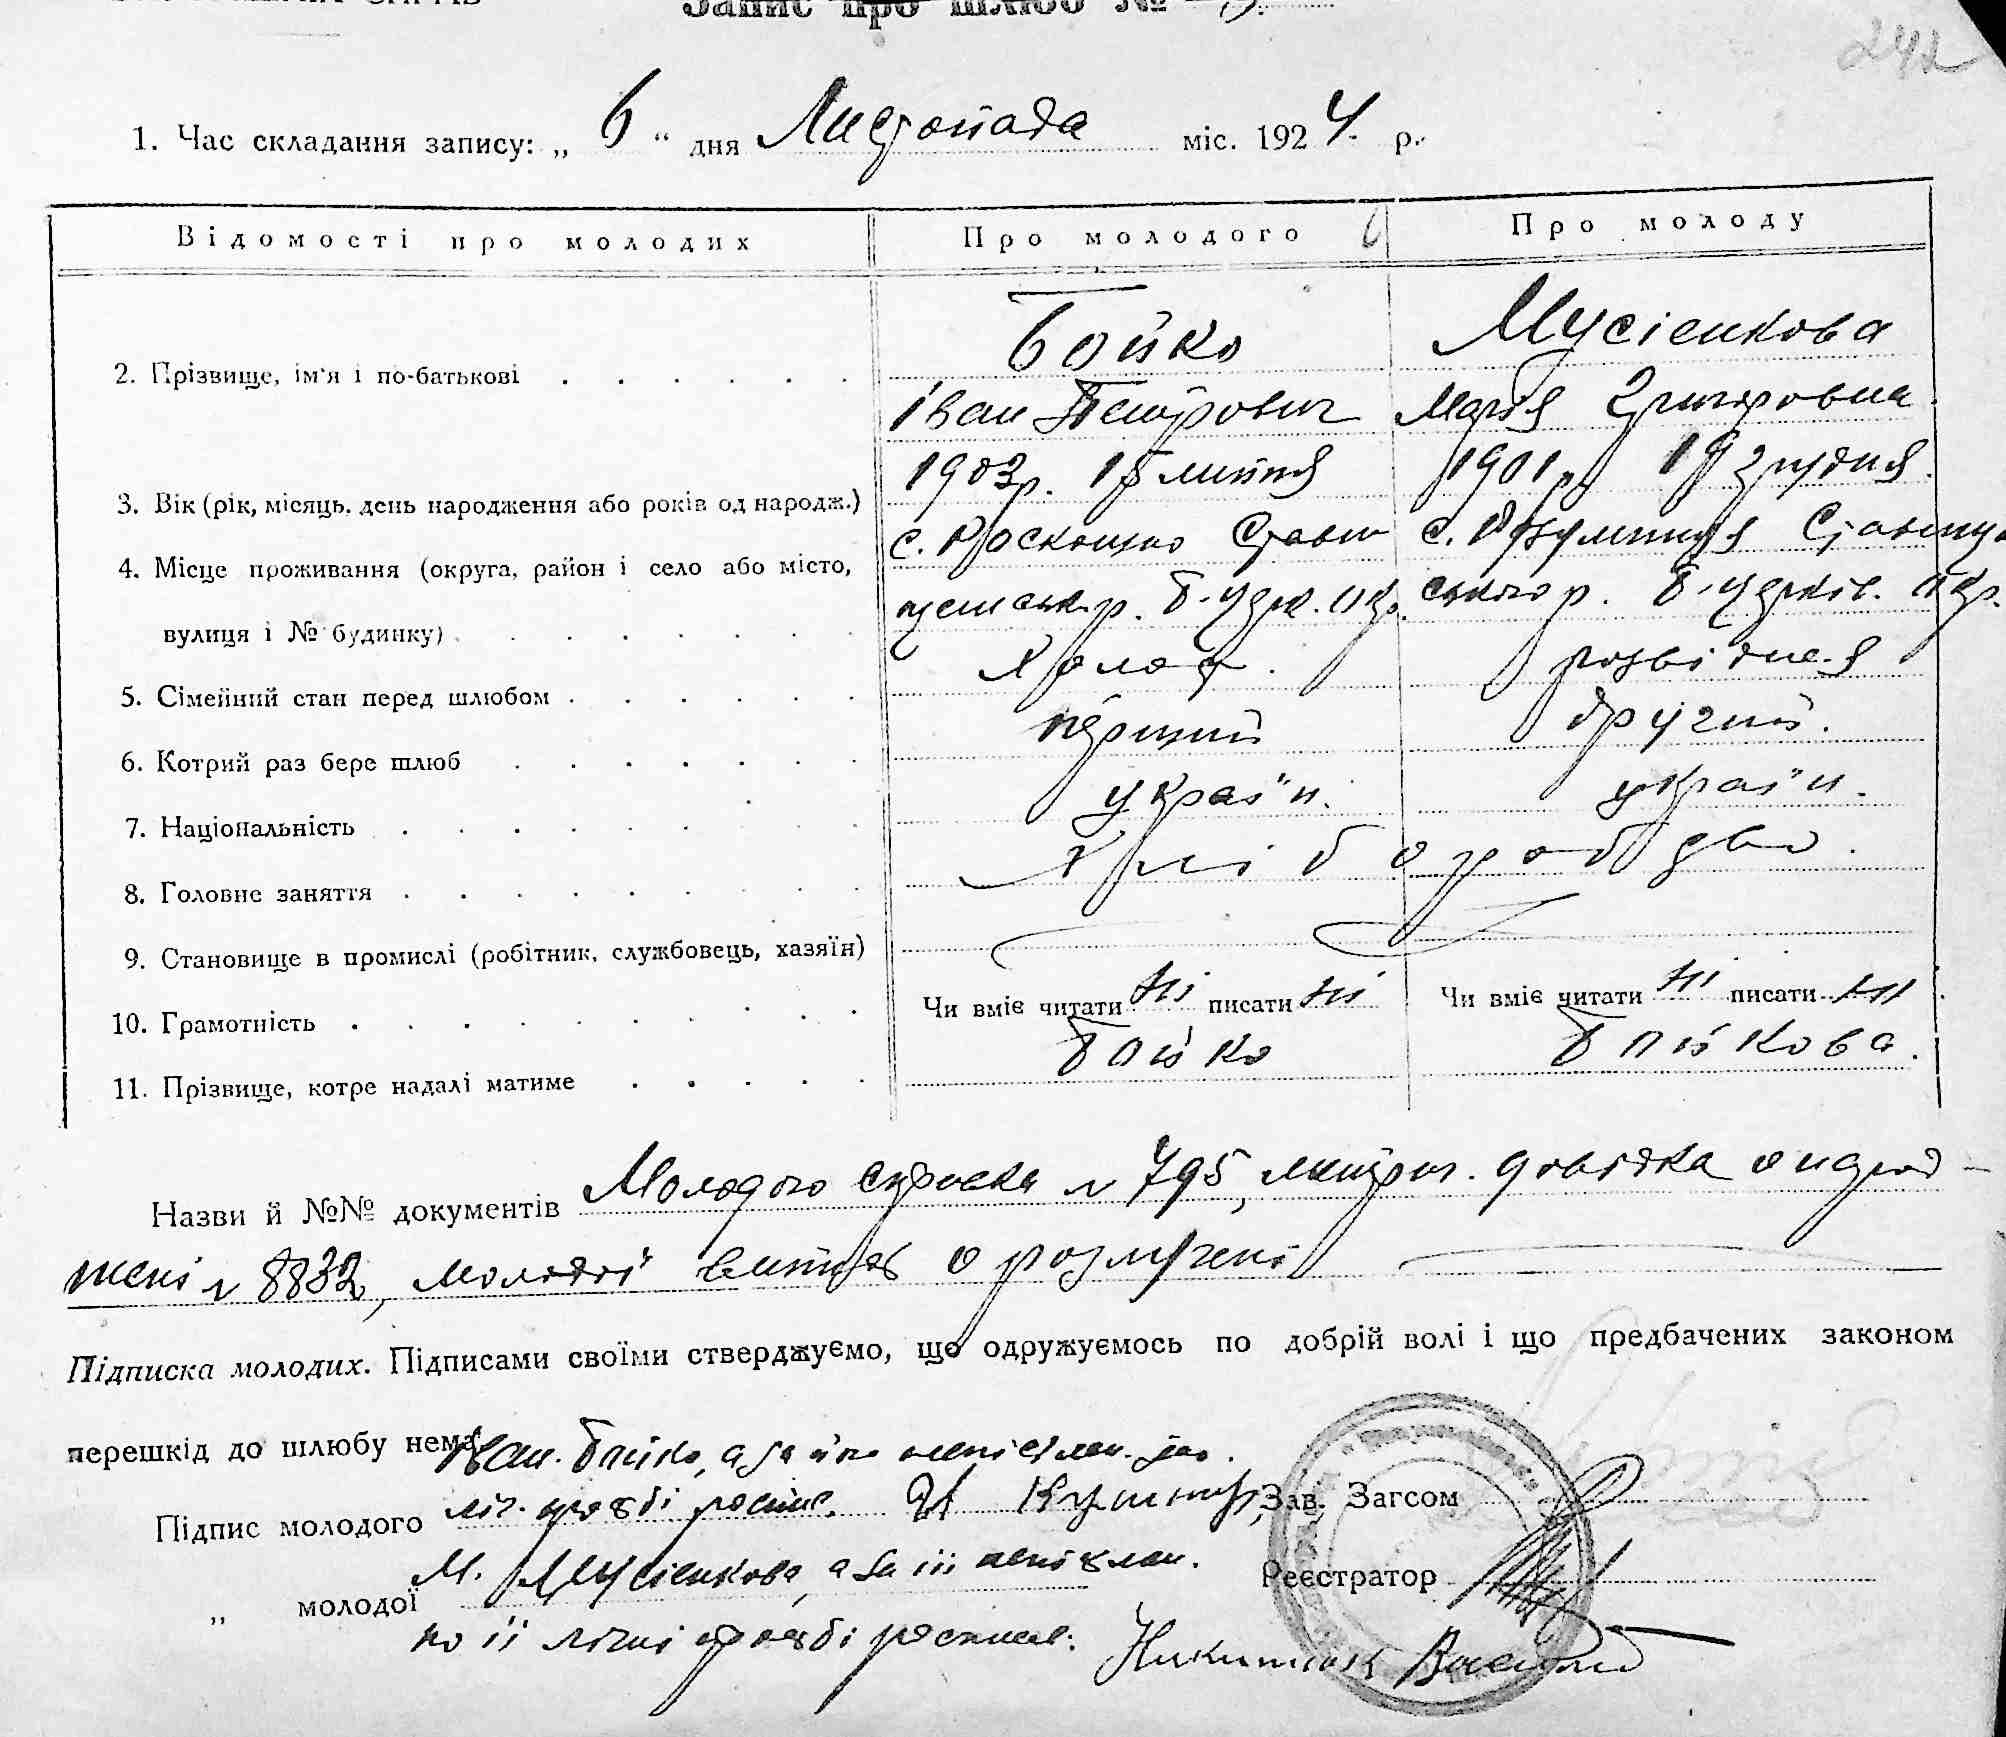 Запис про шлюб №
242
1. Час складання запису: „ 6 “ дня Листопада міс. 1924 р.
Відомості про молодих Про молодого Про молоду
2. Прізвище, ім'я і по-батькові Бойко Мусієнкова
Іван Петрович Марія Григоровна
3. Вік (рік, місяць, день народження або років од народж.) 1903 р. 15 липня 1901 р. 19 грудня
4. Місце проживання (округа, район і село або місто, с. Роскошно Стави с. Ставищ
вулиця і № будинку) щенськ. р. Б-Церк. окр. ського р. Б-Церків. окр.
5. Сімейний стан перед шлюбом Холост. розвідная
6. Котрий раз бере шлюб перший другий.
7. Національність украї'н. украї'н.
8. Головне заняття Хліборобство.
9. Становище в промислі (робітник, службовець, хазяїн)
10. Грамотність Чи вміє читати ні писати ні Чи вміє читати ні писати ні
11. Прізвище, котре надалі матиме Бойко Бойкова.
Назви й №№ документів Молодого справка № 795, метрич. довідка о народ-
жені № 8832, молодої витяг о розлучені
Підписка молодих. Підписами своїми стверджуємо, що одружуємось по добрій волі і що предбачених законом
перешкід до шлюбу нема. Іван Бойко, а за його неписьмен. по
Підпис молодого ліч. прозбі розпис. Зав. Загсом
„ молодої М. Мусієнкова, а за її неписьмен. Реєстратор
по її лічні прозбі росписав. Никитюк Василь